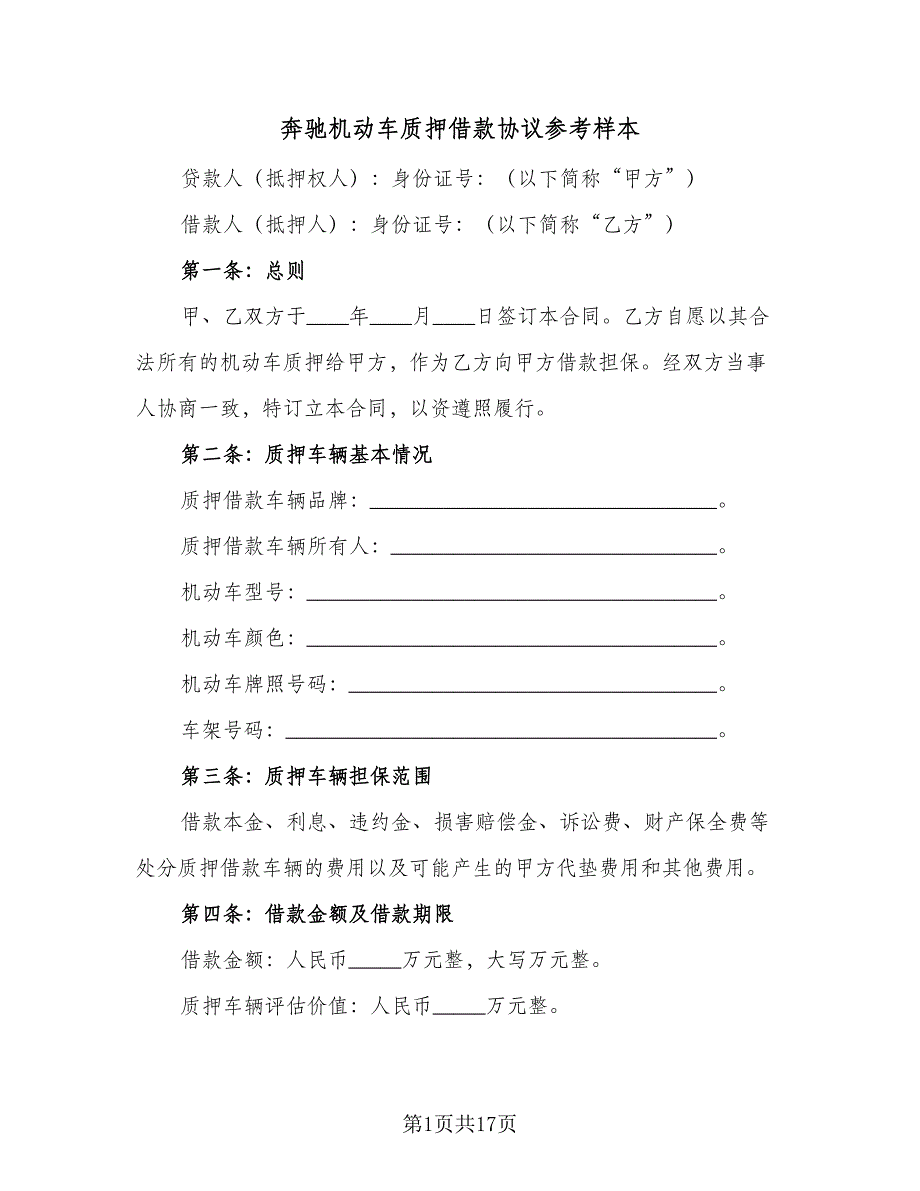 奔驰机动车质押借款协议参考样本
贷款人（抵押权人）：身份证号：（以下简称“甲方”）
借款人（抵押人）：身份证号：（以下简称“乙方”）
第一条：总则
甲、乙双方于____年____月____日签订本合同。乙方自愿以其合
法所有的机动车质押给甲方，作为乙方向甲方借款担保。经双方当事
人协商一致，特订立本合同，以资遵照履行。
第二条：质押车辆基本情况
质押借款车辆品牌：_________________________________。
质押借款车辆所有人：_______________________________。
机动车型号：_______________________________________。
机动车颜色：_______________________________________。
机动车牌照号码：___________________________________。
车架号码：_________________________________________。
第三条：质押车辆担保范围
借款本金、利息、违约金、损害赔偿金、诉讼费、财产保全费等
处分质押借款车辆的费用以及可能产生的甲方代垫费用和其他费用。
第四条：借款金额及借款期限
借款金额：人民币_____万元整，大写万元整。
质押车辆评估价值：人民币_____万元整。
第1页共17页